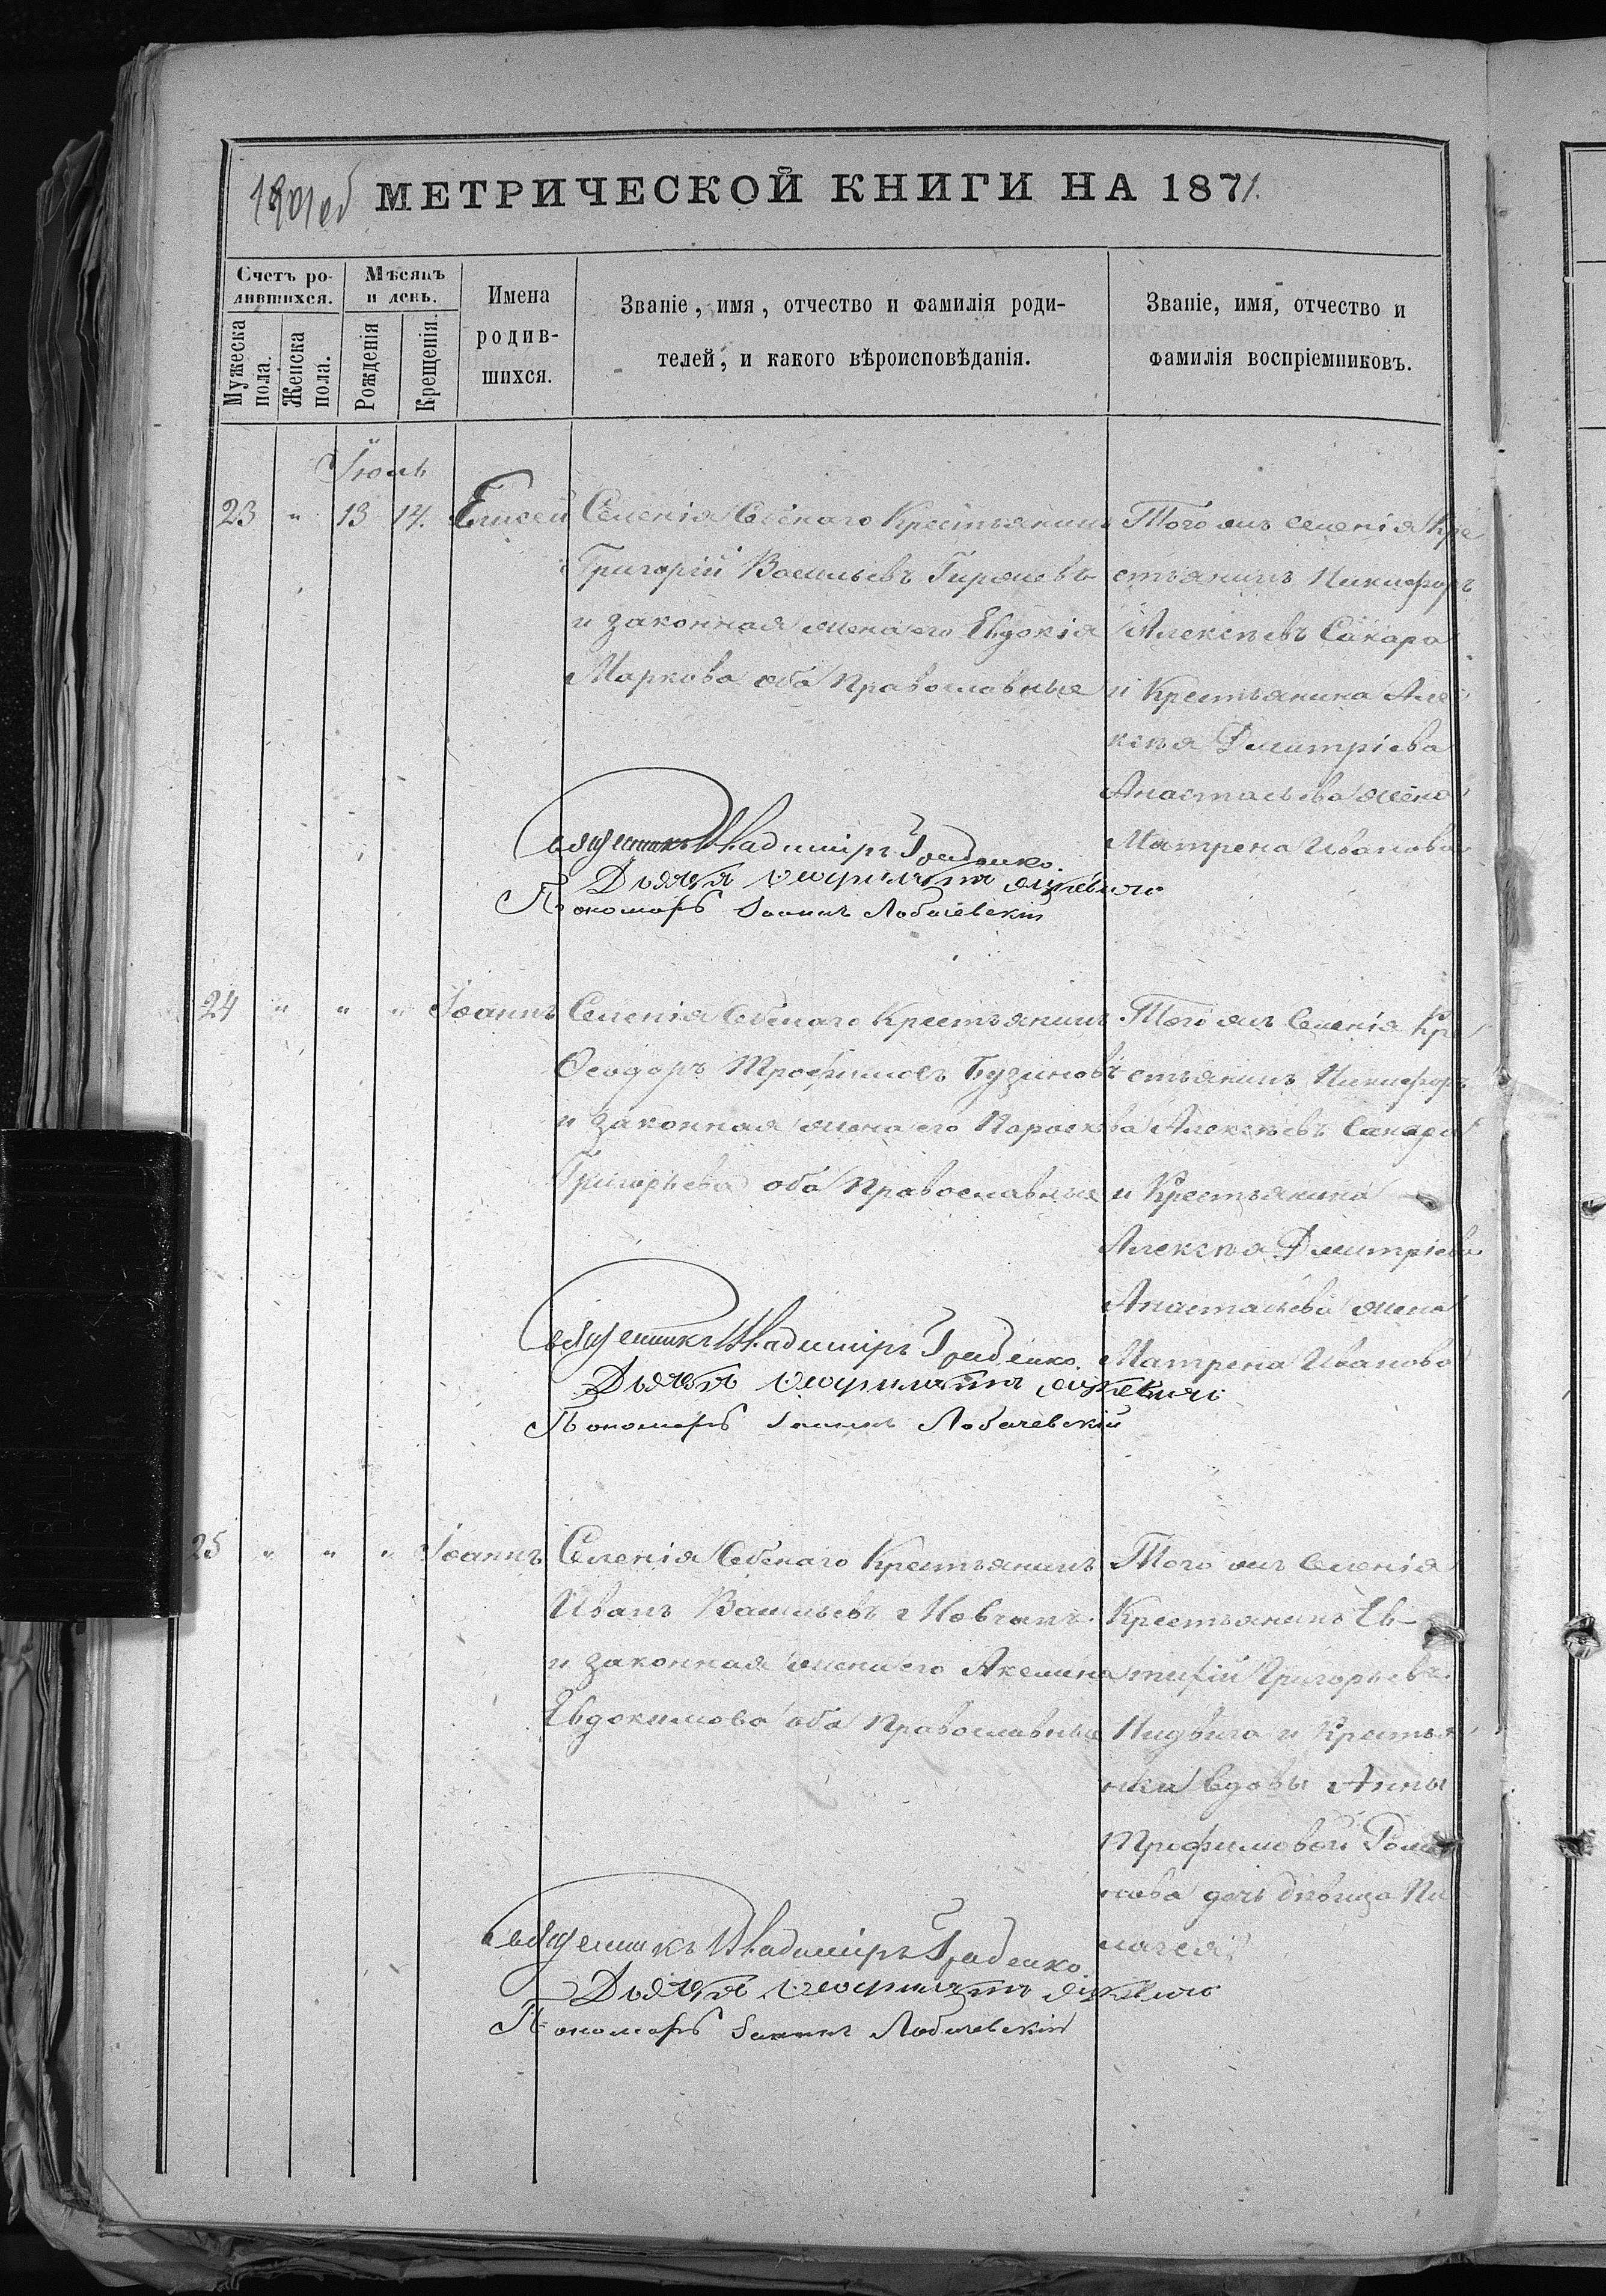 МЕТРИЧЕСКОЙ КНИГИ НА 1871.
Счетъ родившихся.
Мужеска пола.
Женска пола.
Мѣсяцъ и день.
Рожденія
Крещенія.
Имена родившихся.
Званіе, имя, отчество и фамилія роди-
телей, и какого вѣроисповѣданія.
Званіе, имя, отчество и
фамилія воспріемниковъ.
Іюль
23 " 13 14. Елисей
Селенія Крестьянинъ
Григорій Васильевъ
и законная жена его Евдокія
Маркова оба Православные
Того жъ селенія Кре
стьянинъ Никифоръ
Алексѣевъ Сакара
и Крестьянина Але
ксѣя Димитріева
Анастасьева жена
Матрена Иванова
Священникъ Владиміръ Граденко
Дьячокъ
Пономарь Іоаннъ Лобачевскій
24 " " " Іоаннъ
Селенія Крестьянинъ
Ѳеодоръ Трофимовъ Бузиновъ
и законная жена его Параскева
Григорьева оба Православные
Того жъ Селенія Кре
стьянинъ Никифоръ
Алексѣевъ Сакара
и Крестьянина
Алексѣя Дмитріева
Анастасьева жена
Матрена Иванова
Священникъ Владиміръ Граденко.
Дьячокъ
Пономарь Іоаннъ Лобачевскій
25 " " " Іоаннъ
Селенія Крестьянинъ
Иванъ Васильевъ Мовчанъ
и законная жена его Акелина
Евдокимова оба Православные
Того жъ Селенія
Крестьянинъ Ев-
тифій Григорьевъ
и Крестья
нки вдовы Анны
Трофимовой
дочь дѣвица Пе
лагея.
Священникъ Владиміръ Граденко
Дьячокъ
Пономарь Іоаннъ Лобачевскій